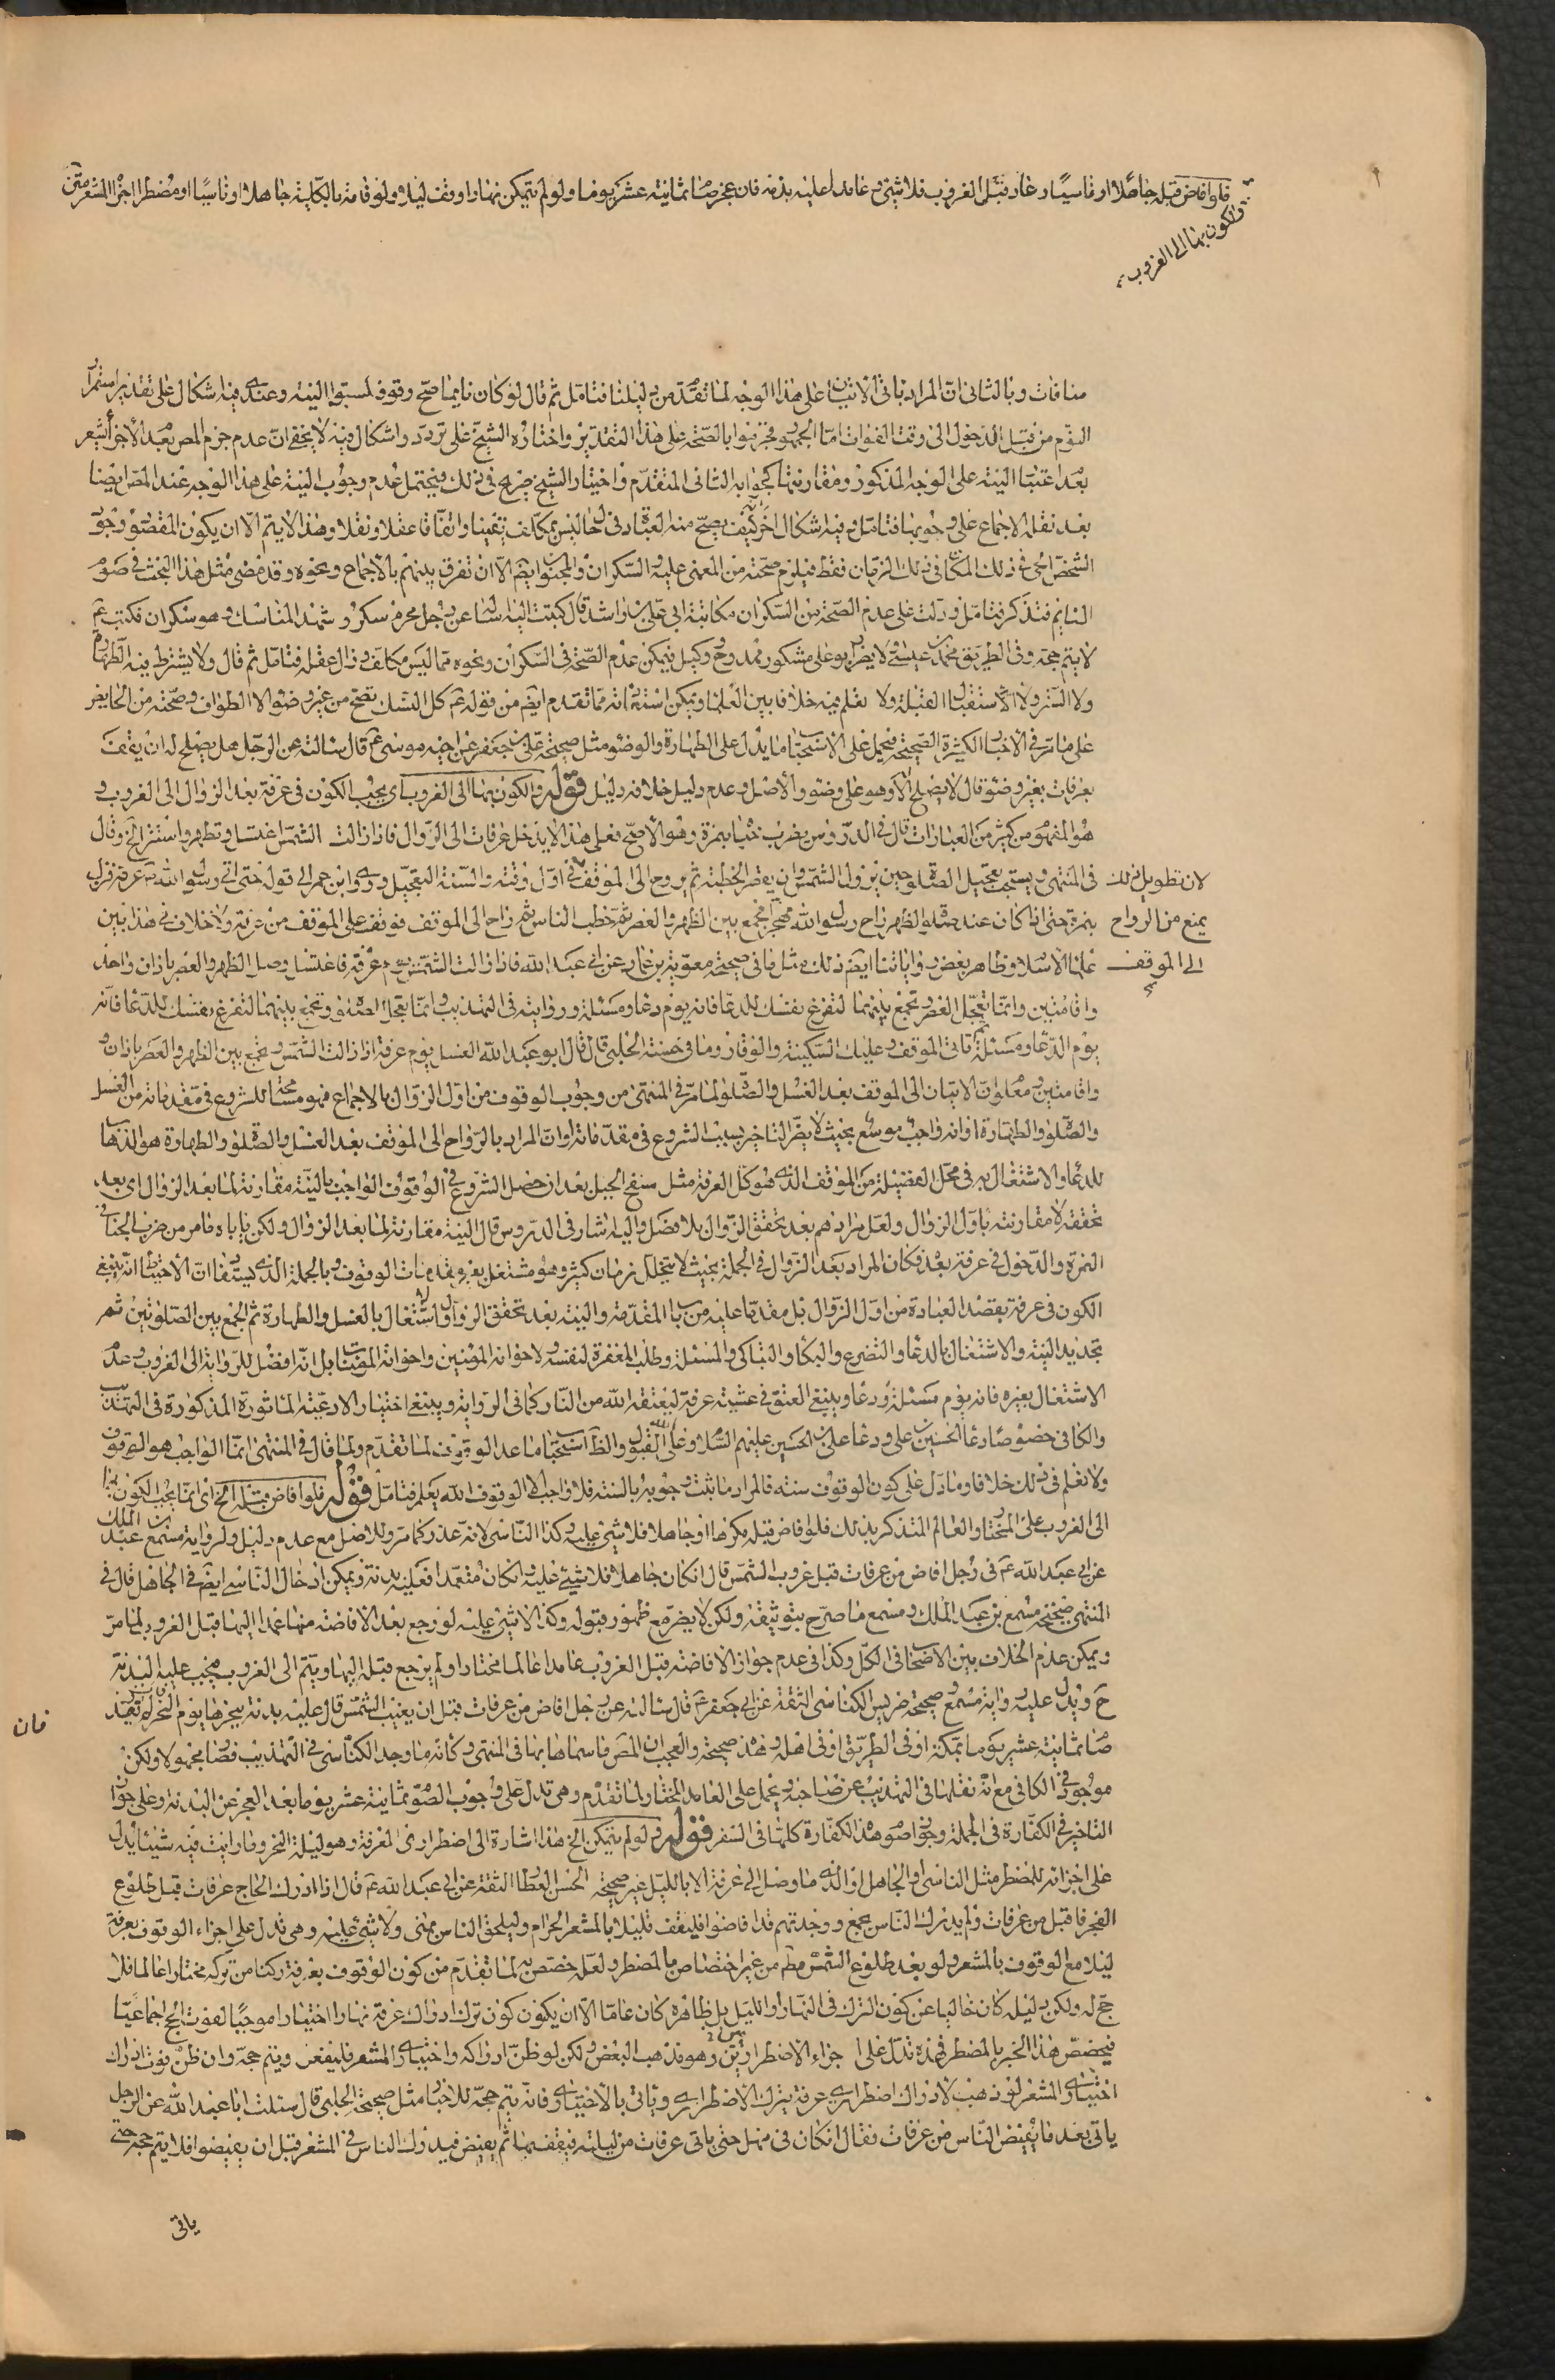 فلو افاض قبله جاهلا او ناسيا وعاد قبل الغروب فلا شئ وعامدا عليه بدنه فان عجز صام ثمانية عشر يوما ولو لم يتمكن نهارا وقف ليلا ولو فاته بالكلية جاهلا او ناسيا او مضطرا اجزأ المشعر
والكون بها الى الغروب
منافات وبالثانى ان المراد باقى الاتيان على هذا الوجه لما تقدم من دليلنا فتامل ثم قال لو كان نايما صح وقوفه لسبق النية وعندى فيه اشكال على تقدير استمرار
النوم من قبل الدخول الى وقت الفوات اما الجمهور فجزموا بالصحة على هذا التقدير واختاره الشيخ على تردد واشكال وفيه لا يخفى ان عدم جزم المص بعد الاجزأ يشعر
بعد اعتبار النية على الوجه المذكور ومقارنتها كجوابه الثانى المتقدم واختيار الشيخ صريح فى ذلك فيحتمل عدم وجوب النية على هذا الوجه عند المص ايضا
بعد نقله الاجماع على وجوبها فتامل وفيه اشكال اخر كيف يصح منه العبادة فى حال ليس بمكلف يقينا واتفاقا عقلا ونقلا وهذا لا يتم الا ان يكون المقصود وجود
الشخص الحى فى ذلك المكان فى ذلك الزمان فقط فيلزم صحته من المغمى عليه والسكران والمجنون ايضا الا ان تفرق بينهم بالاجماع ونحوه وقد مضى مثل هذا البحث فى صوم
النايم فتذكر فتامل ودلت على عدم الصحة من السكران مكاتبة ابى على بن راشد قال كتبت اليه اساله عن رجل محرم سكر وشهد المناسك وهو سكران فكتب ع
لا يتم حجه وفى الطريق محمد بن عيسى ولا يضر ابو على مشكور ممدوح وكيل فيمكن عدم الصحة فى السكران ونحوه مما ليس مكلف فى زال عقله فتامل ثم قال ولا يشترط فيه الطهارة
ولا الستر ولا الاستقبال القبلة ولا نعلم فيه خلافا بين العلما ويمكن استفادته مما تقدم ايضا من قوله ع كل النسك تصح من غير وضوء الا الطواف وصحته من الحايض
على ما مر فى الاخبار الكثيرة الصحيحة فيحمل على الاستحباب ما يدل على الطهارة والوضوء مثل صحيحة على بن جعفر عن اخيه موسى ع قال سالته عن الرجل هل يصلح له ان يقف
بعرفات بغير وضوء قال لا يصلح الا وهو على وضوء والاصل وعدم دليل خلافه دليل قوله والكون بها الى الغروب اى يجب الكون فى عرفة بعد الزوال الى الغروب و
هو المفهوم من كثير من العبارات قال فى الدروس يضرب خباه بنمرة وهو الاصح فعلى هذا لا يدخل عرفات الى الزوال فاذا زالت الشمس اغتسل وتطهر واستتر الخ وقال
فى المنتهى ويستحب تعجيل الصلوة حين يزول الشمس وان يقصر الخطبة ثم يروح الى الموقف فى اول وقته والسنة التعجيل وروى ابن عمر الى قوله حتى اتى رسول الله ص عرفة فنزل
لان تطويل ذلك
بنمرة حتى اذا كان عند صلوة الظهر راح رسول الله ص مهجرا فجمع بين الظهر والعصر ثم خطب الناس ثم راح الى الموقف فوقف على الموقف من عرفة ولا خلاف فى هذا بين
يمنع من الرواح
علماء الاسلام وظاهر بعض رواياتنا ايضا ذلك مثل ما فى صحيحة معوية بن عمار عن ابى عبد الله فاذا زالت الشمس يوم عرفة فاغتسل وصل الظهر والعصر باذان واحد
الى الموقف
واقامتين وانما تعجل العصر وتجمع بينهما لتفرغ نفسك للدعا فانه يوم دعا ومسئلة وروايته فى التهذيب وانما تعجل الصلوة وتجمع بينهما لتفرغ نفسك للدعا فانه
يوم الدعا ومسئلة ثم تاتى الموقف وعليك السكينة والوقار وما فى حسنة الحلبى قال قال ابو عبد الله الغسل يوم عرفة اذا زالت الشمس وتجمع بين الظهر والعصر باذان و
واقامتين ومعلوم ان الاتيان الى الموقف بعد الغسل والصلوة لما مر فى المنتهى من وجوب الوقوف من اول الزوال بالاجماع فهو محتاج للشروع فى مقدماته من الغسل
والصلوة والطهارة او انه واجب موسع بحيث لا يضر التاخير بسبب الشروع فى مقدماته او ان المراد بالرواح الى الموقف بعد الغسل والصلوة والطهارة هو الذهاب
للدعا والاشتغال به فى محل الفضيلة من الموقف الذى هو كل العرفة مثل سفح الجبل بعد ان حصل الشروع فى الوقوف الواجب بالنية مقارنة لما بعد الزوال اى بعد
تحققه لا مقارنته باول الزوال ولعل مرادهم بعد تحقق الزوال بلا فصل واليه اشار فى الدروس قال النية مقارنة لما بعد الزوال ولكن ياباه ما مر من ضرب الخباء فى
النمرة والدخول فى عرفة بعد فكان المراد بعد الزوال فى الجملة بحيث لا يتخلل زمان كثير وهو مشتغل بغير مقدمات الوقوف وبالجملة الذى يستفاد ان الاحتياط انه ينبغى
الكون فى عرفة بقصد العبادة من اول الزوال بل مقدما عليه من باب المقدمة والنية بعد تحقق الزوال والاشتغال بالغسل والطهارة ثم الجمع بين الصلوتين ثم
تجديد النية والاشتغال بالدعا والتضرع والبكا والتباكى والمسئلة وطلب المغفرة لنفسه ولاخوانه المومنين واخوانه المؤمنات بل انه افضل للرواية الى الغروب وعدم
الاشتغال بغيره فانه يوم مسئلة ودعا وينبغى العتق فى عشية عرفة ليعتقه الله من النار كما فى الرواية وينبغى اختيار الادعية الماثورة المذكورة فى التهذيب
والكافى خصوصا دعا الحسين بن على ودعا على بن الحسين عليهم السلام وعلى الله القبول والظاهر استحباب ما عدا الوقوف لما تقدم ولما قال فى المنتهى انما الواجب هو الوقوف
ولا نعلم فى ذلك خلافا وما دل على كون الوقوف سنة فالمراد ما ثبت وجوبه بالسنة فلا واجب الا الوقوف الله يعلم فتامل قوله فلو افاض قبله الخ اى انما يجب الكون بها
الى الغروب على المختار والعالم المتذكر بذلك فلو افاض قبله مكرها او جاهلا فلا شئ عليه وكذا الناسى لانه عذر كما مر وللاصل مع عدم دليل ولرواية مسمع بن عبد الملك
عن ابى عبد الله ع فى رجل افاض من عرفات قبل غروب الشمس قال ان كان جاهلا فلا شئ عليه وان كان متعمدا فعليه بدنة ويمكن ادخال الناسى ايضا فى الجاهل قال فى
المنتهى صحيحة مسمع بن عبد الملك ومسمع ما صرح بتوثيقه ولكن لا يضر مع ظهور قبوله وكذا لا شئ عليه لو رجع بعد الافاضة منها عمدا اليها قبل الغروب لما مر
ويمكن عدم الخلاف بين الاصحاب فى الكل وكذا فى عدم جواز الافاضة قبل الغروب عامدا عالما مختارا ولم يرجع قبله اليها ويتم الى الغروب يجب عليه البدنة
ح ويدل عليه رواية مسمع وصحيحة ضريس الكناسى الثقة عن ابى جعفر ع قال سالته عن رجل افاض من عرفات قبل ان يغيب الشمس قال عليه بدنة ينحرها يوم النحر فان لم يقدر
فان
صام ثمانية عشر يوما بمكة او فى الطريق او فى اهله وهذه صحيحة والعجب ان المص ما سماها بها فى المنتهى وكانه ما وجد الكناسى فى التهذيب فصار مجهولا ولكن
موجود فى الكافى مع انه نقلها فى التهذيب عن صاحبه ويحمل على العامد المختار لما تقدم وهى تدل على وجوب الصوم ثمانية عشر يوما بعد العجز عن البدنة وعلى جواز
التاخير فى الكفارة فى الجملة وجواز صوم هذه الكفارة كلها فى السفر قوله ولو لم يتمكن الخ هذا اشارة الى اضطرارى المعرفة وهو ليلة النحر وما رايت فيه شيئا يدل
على اجزائه للمضطر مثل الناسى والجاهل او الذى ما وصل الى عرفة الا بالليل غير صحيحة الحسن العطار الثقة عن ابى عبد الله ع قال اذا ادرك الحاج عرفات قبل طلوع
الفجر فاقبل من عرفات ولم يدرك الناس بجمع ووجدتهم قد افاضوا فليقف قليلا بالمشعر الحرام وليلحق الناس بمنى ولا شئ عليه وهى تدل على اجزاء الوقوف بعرفة
ليلا مع الوقوف بالمشعر ولو بعد طلوع الشمس مطم من غير اختصاص بالمضطر ولعله خصص به لما تقدم من كون الوقوف بعرفة ركنا من تركه مختارا عالما فلا
حج له ولكن دليله كان خاليا عن كون الترك فى النهار او الليل بل ظاهره كان عاما الا ان يكون كون ترك ادراك عرفة نهارا اختيارا موجبا لفوت الحج اجماعيا
فيخصص هذا الخبر بالمضطر فهذه تدل على اجزاء الاضطراريين وهو مذهب البعض ولكن لو ظن ادراكه واختيارى المشعر فليفعل ويتم حجه وان ظن فوت ادراك
اختيارى المشعر لو ذهب لادراك اضطرارى عرفة يترك الاضطرارى وياتى بالاختيارى فانه يتم حجه للاخبار مثل صحيحة الحلبى قال سئلت ابا عبد الله عن الرجل
ياتى بعد ما يفيض الناس من عرفات فقال ان كان فى مهل حتى ياتى عرفات من ليلته فيقف بها ثم يفيض فيدرك الناس فى المشعر قبل ان يفيضوا فلا يتم حجه حتى
ياتى